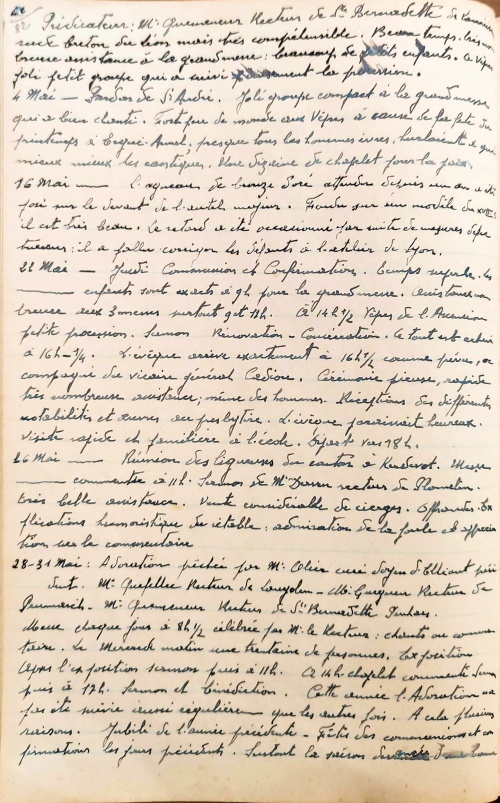 Prédicateur: Mr Quemeneur Recteur de Ste Bernadette de
breton du Léon mais très compréhensible. Beau temps.
assistance à la grand messe; beaucoup de petits enfants. Vêpres
Joli petit groupe qui a suivi la procession.
4 Mai — Pardon de St André. Joli groupe compact à la grand messe
qui a bien chanté. Fort peu de monde aux Vêpres à cause de la fête du
printemps à presque tous les hommes ivres, hurlaient à qui
mieux mieux les cantiques. Une dizaine de chaplet pour la paix.
16 Mai — l'agneau de bronze doré attendu depuis un an a été
posé sur le devant de l'autel majeur. Fondu sur un modèle du XVIIe
il est très beau. Le retard a été occasionné par suite de mesures
il a fallu corriger les défauts à l'atelier de Lyon.
22 Mai — Jeudi Communion et Confirmation. Temps superbe. les
enfants sont exacts à 9h pour la grand messe. Assistance nom
breuse aux 3 messes surtout 9 et 11h. A 14h 1/2 Vêpres de l'Ascension
petite procession. Sermon Rénovation - Consécration. Le tout est achevé
à 16h-1/4. L'évêque arrive exactement à 16h 1/2 comme prévu, ac
compagné du vicaire général Cadiou. Cérémonie pieuse, rapide
très nombreuse assistance; même des hommes. Réceptions des différentes
notabilités et œuvres au presbytère. L'évêque paraissait heureux.
Visite rapide et familière à l'école. Départ vers 18h.
26 Mai — Réunion des ligueuses du canton à Kerdévot. Messe
commentée à 11h. Sermon de Mr recteur de Plomelin.
très belle assistance. Vente considérable de cierges. Offrandes. Ex
plications humoristique du rétable: admiration de la foule et apprécia
tions sur le commentaire
28-31 Mai: Adoration prêchée par Mr Olier curé doyen d'Elliant prési
dent. Mr Quefellec Recteur de Langolen - Mr Gueguen Recteur de
Penmarch - Mr Quemeneur Recteur de Ste Bernadette Penhars.
Messe chaque jour à 8h 1/2 célébrée par Mr le Recteur: chants ou commen
taire. Le Mercredi matin une trentaine de personnes. Exposition
Après l'exposition sermon puis à 11h. A 14h chaplet commenté Sermon
puis à 17h. Sermon et Bénédiction. Cette année l'Adoration n'a
pas été suivie aussi régulièrem que les autres fois. A cela plusieurs
raisons. Jubilé de l'année précédente - Fêtes des communions et con
firmations les jours précédents. Surtout la saison